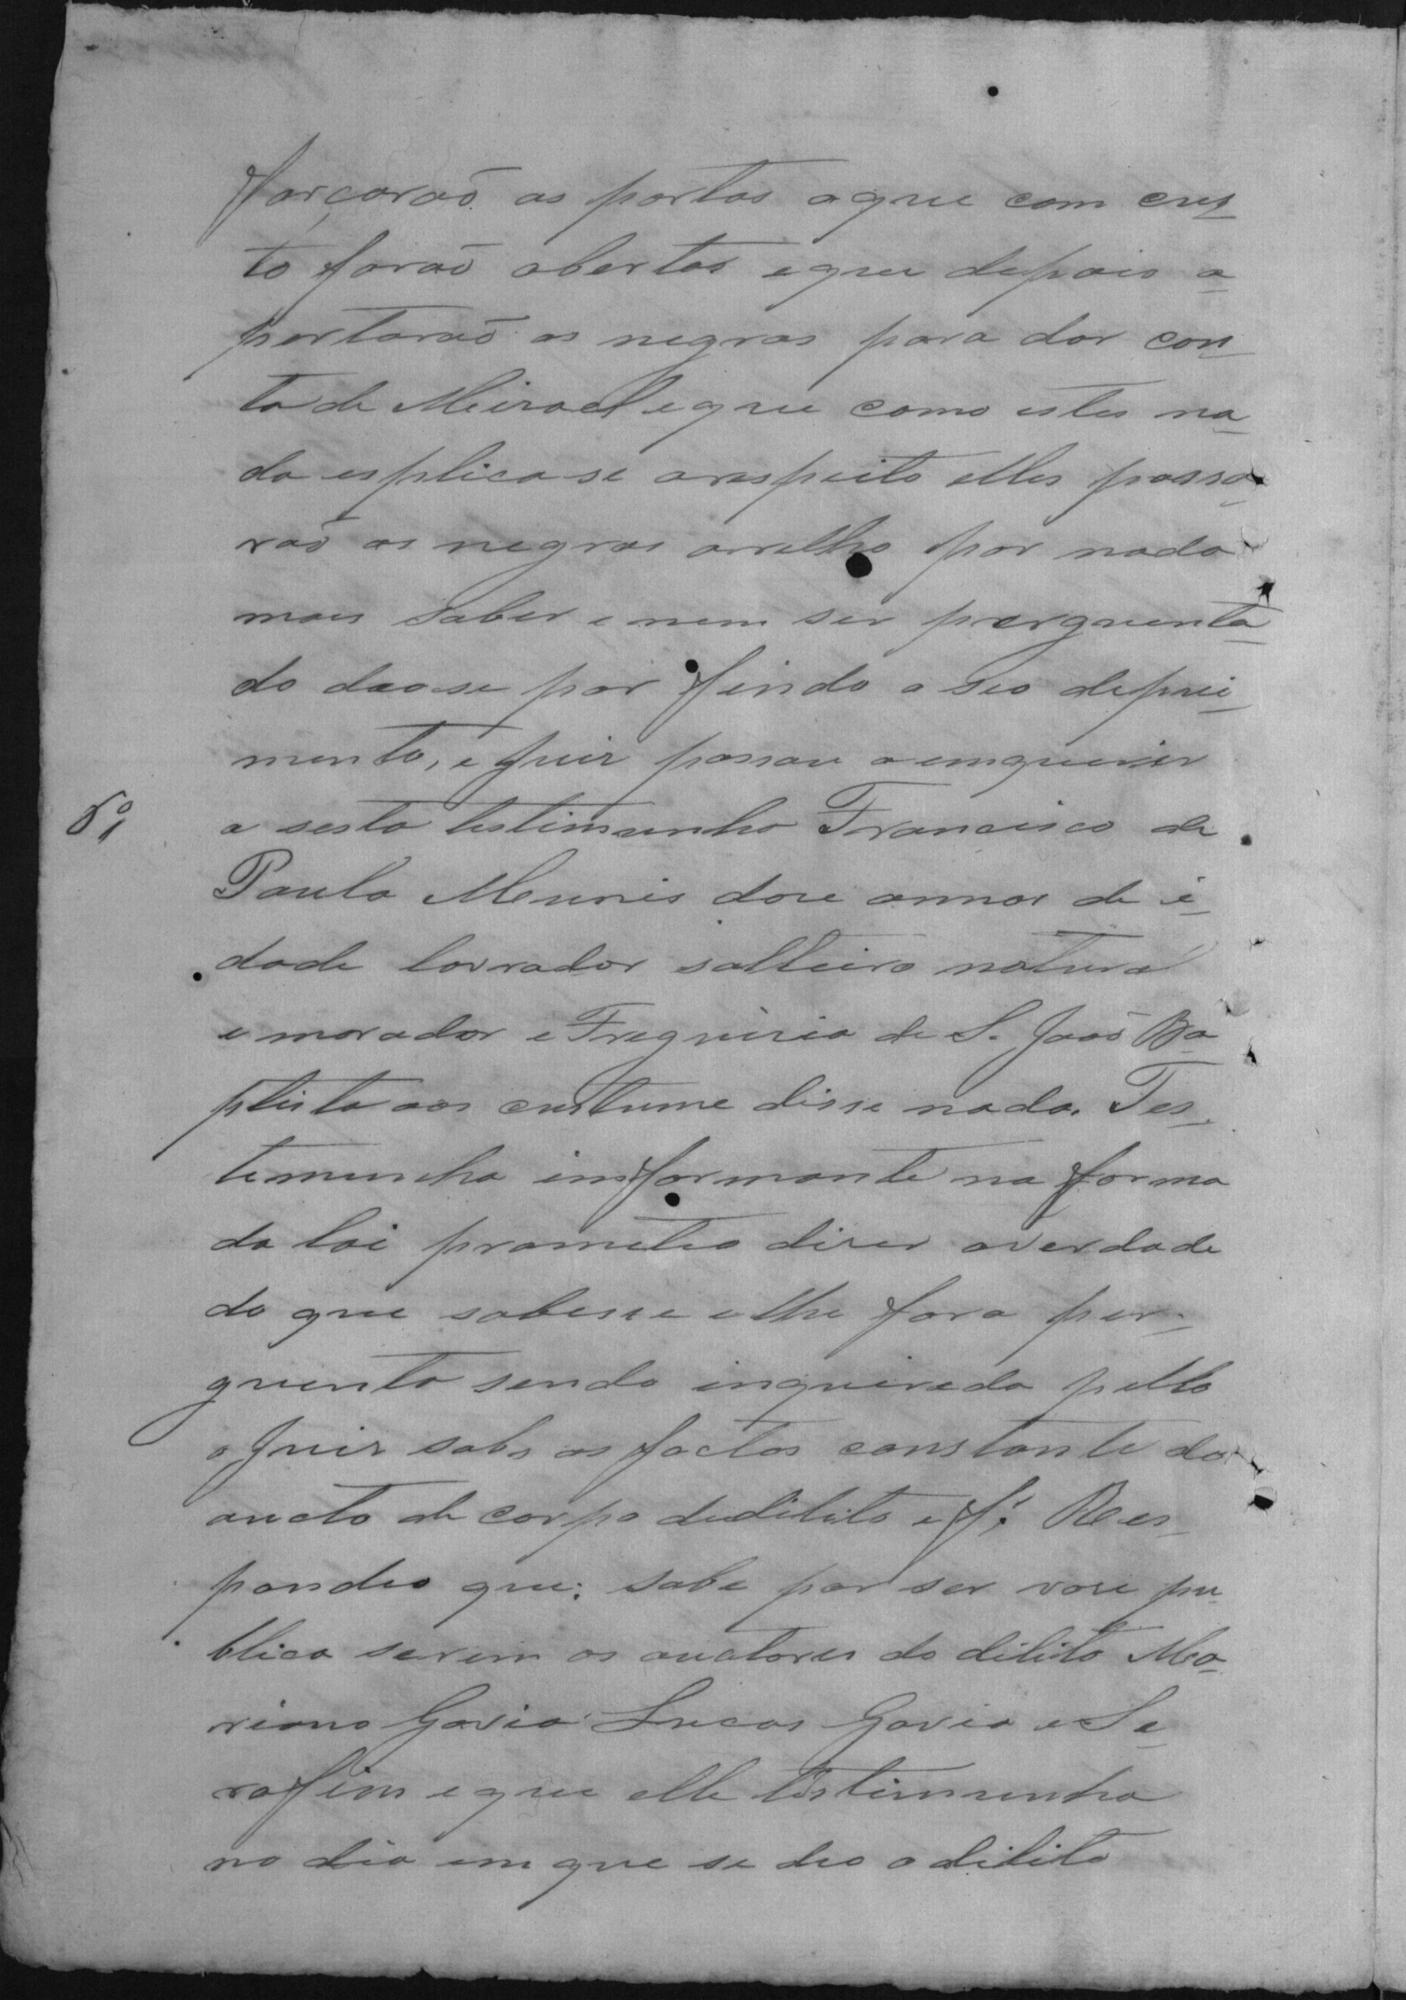 forçarão as portas a que com cus_
to forão abertas e que depois a_
pertarão os negros para dar con_
ta de Meirael e que como estes na_
da esplica se a respeito elles passa_
rão os negros a relho por nada
mais saber e nem ser preguenta_
do deo se por findo o seo depuei_
mento, e Juir passou a emquerir
6ª
a sesta testimunha Francisco de
Paula Meunis dose annos de i_
dade lavrador soltteiro natural
e morador e Freguisia de S. João Ba_
ptista aos custume disse nada. Tes_
temunha imformante na forma
da lai prometeo diser a verdade
do que sobesse e lhe fora per_
guenta sendo inquereda pello
o Juir sobs os factos constante do
aucto de corpo dedilito e f.ª Res_
pondeo que: sabe por ser vose pu_
blica serem os auctores do dilito Ma_
riano Gavia Lucas Gavia e Se_
rafim e que elle testimunha
no dia em que se deo o dilito